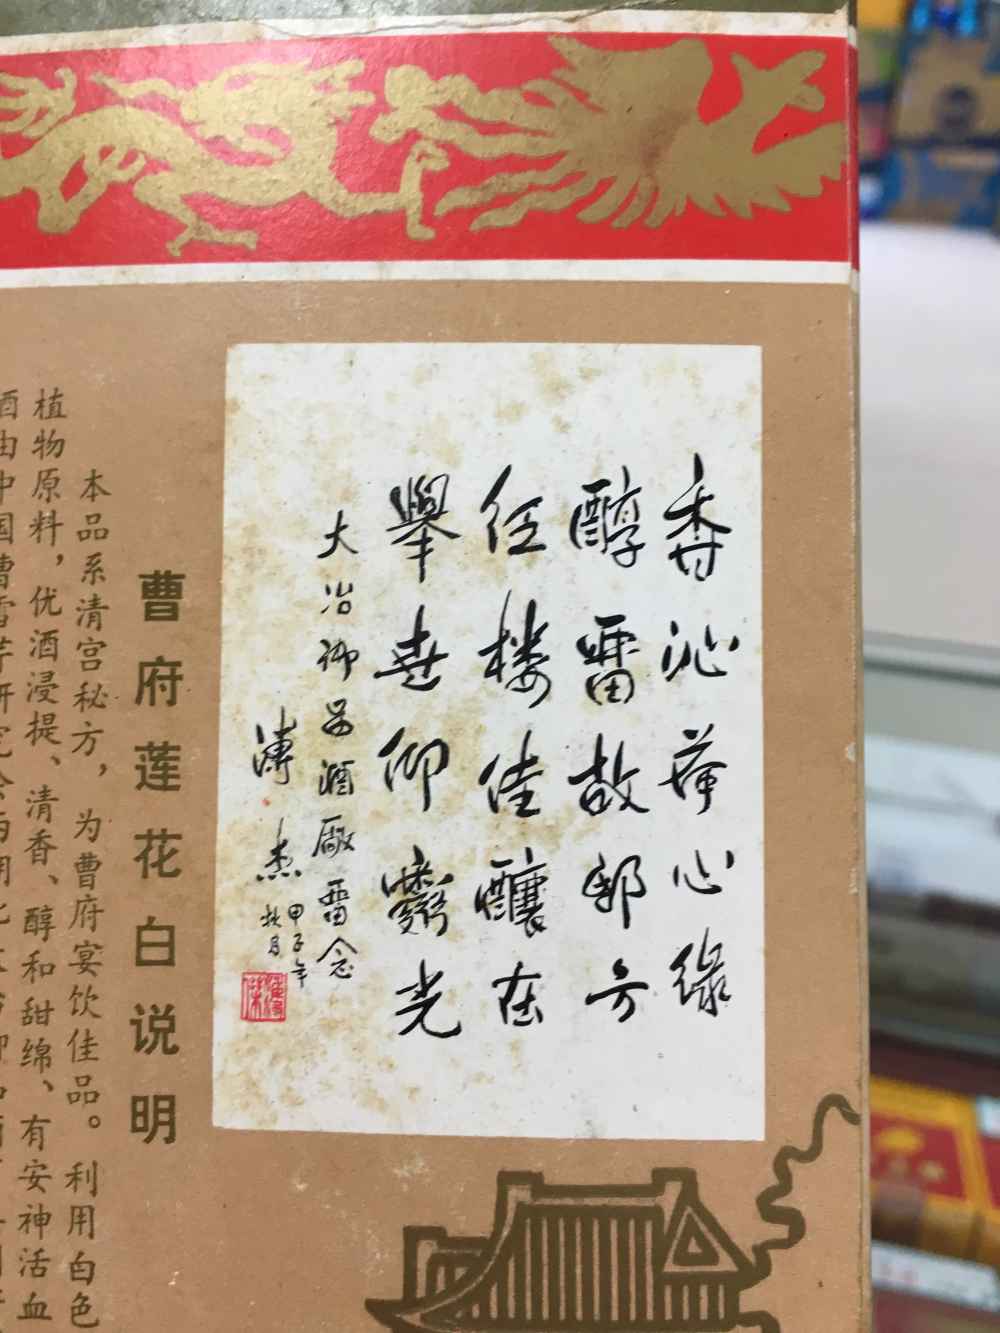 香沁蓮心绿
醇畱故邸方
红楼佳酿在
舉世仰光
大冶御品酒廠畱念
溥杰
甲子年
秋月
曹府莲花白说明
本品系清宫秘方，为曹府宴饮佳品。利用白色
植物原料，优酒浸提、清香、醇和甜绵、有安神活血
酒由中国曹雪芹研究会